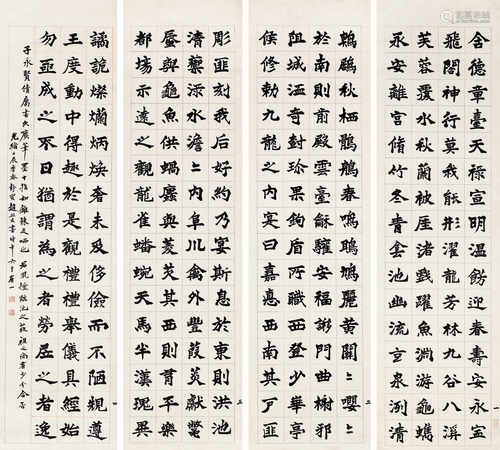 含德章臺天祿宣明溫飭迎春壽安永寧
飛閣神行莫我能形濯龍芳林九谷八溪
芙蓉覆水秋蘭被涯渚戲躍魚淵游龜蠵
永安離宮脩竹冬青陰池幽流玄泉洌清
鵯鶋秋棲鶻鵃春鳴鴡鳩麗黃關〻嚶〻
於南則前殿雲臺龢驩安福謻門曲榭邪
阻城洫奇樹珍果鉤盾所職西登少華亭
候修勅九龍之內寔曰嘉德西南其戶匪
彫匪刻我后好約乃宴斯息於東則洪池
清籞淥水澹〻內阜川禽外豐葭菼獻鱉
蜃與龜魚供蝸蠯與菱芡其西則有平樂
都場示遠之觀龍雀蟠蜿天馬半漢瑰異
譎詭燦爛炳煥奢未及侈儉而不陋規遵
王度動中得趣於是觀禮禮舉儀具經始
勿亟成之不日猶謂為之者勞居之者逸